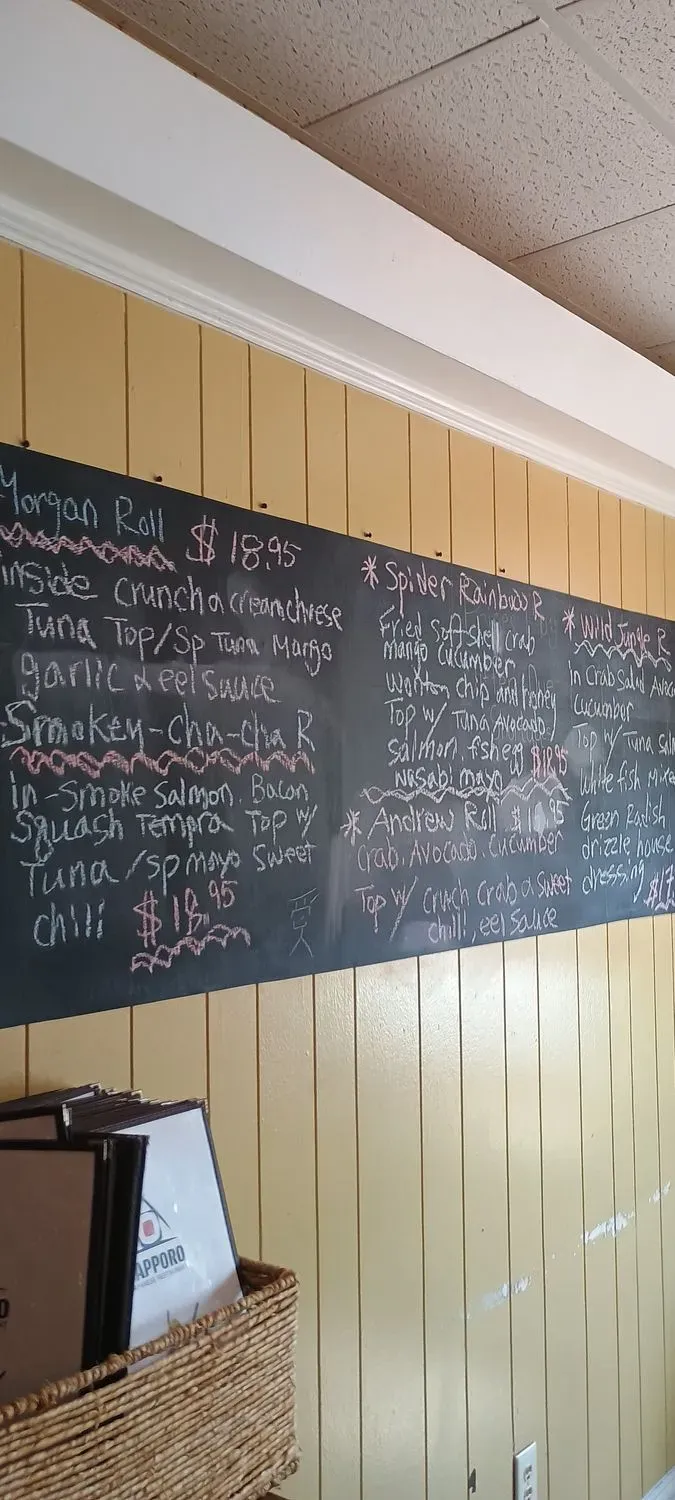 Morgan Roll $18.95
inside crunch a creamchrese
Tuna Top/Sp Tuna Margo
garlic & eel sauce
Smokey-cha-cha R
in-smoke salmon. Bacon
Squash Tempra Top w/
Tuna/spmayo Sweet
chili $18.95
* Spider Rainbow R
Fried Soft shell crab
mango cucumber
wonton chip and honey
Top w/ Tuna Avocado.
Salmon. fshegg $18.95
wasabi mayo
* Andrew Roll
Crab. Avocado. Cucumber
Top w/ crunch Crab a Sweet
chili, eel sauce
* Wild Jungle R
in Crab Salad Avoca
cucumber
Top w/ Tuna Salm
White fish Mixe
Green Radish
drizzle house
dressing $17.
APPORO